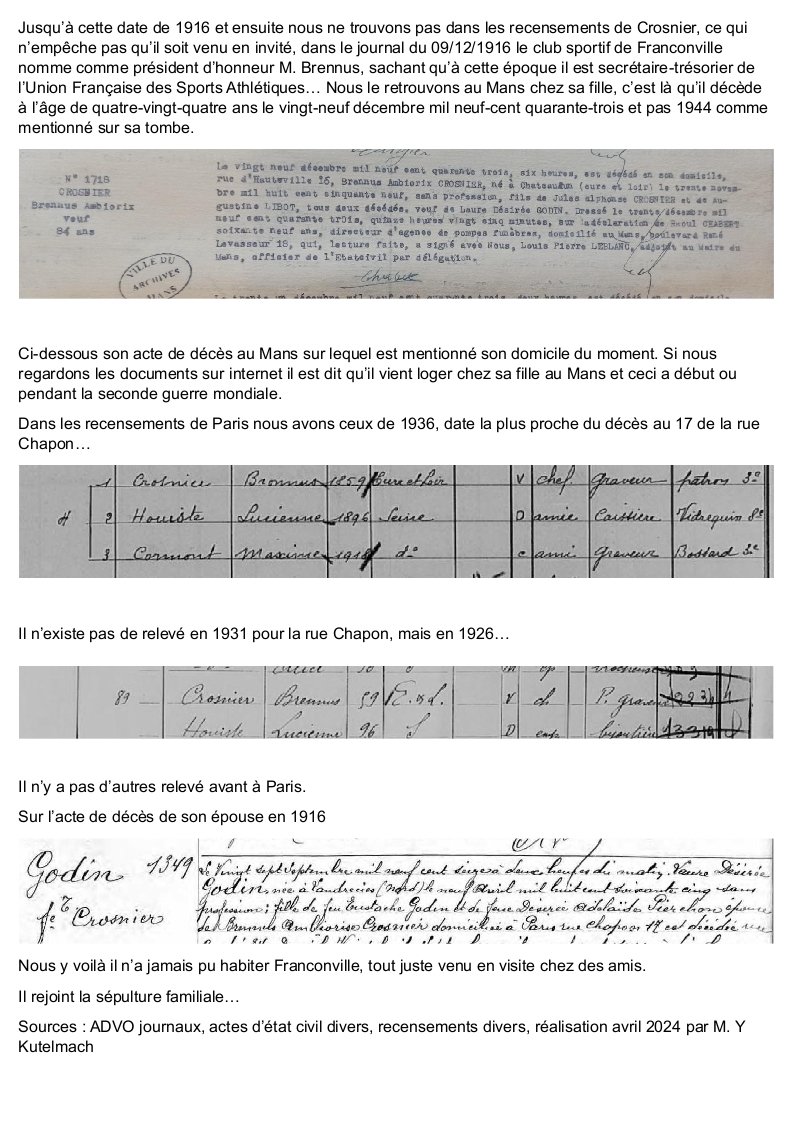 Jusqu’à cette date de 1916 et ensuite nous ne trouvons pas dans les recensements de Crosnier, ce qui
n’empêche pas qu’il soit venu en invité, dans le journal du 09/12/1916 le club sportif de Franconville
nomme comme président d’honneur M. Brennus, sachant qu’à cette époque il est secrétaire-trésorier de
l’Union Française des Sports Athlétiques… Nous le retrouvons au Mans chez sa fille, c’est là qu’il décède
à l’âge de quatre-vingt-quatre ans le vingt-neuf décembre mil neuf-cent quarante-trois et pas 1944 comme
mentionné sur sa tombe.
N° 1718
CROSNIER
Brennus Ambiorix
veuf
84 ans
Le vingt neuf décembre mil neuf cent quarante trois, six heures, est décédé en son domicile,
rue d'Hauteville 16, Brennus Ambiorix CROSNIER, né à Chateaudun (eure et loir) le trente novem-
bre mil huit cent cinquante neuf, sans profession, fils de Jules alphonse CROSNIER et de Au-
gustine LIBOT, tous deux décédés, veuf de Laure Désirée GODIN. Dressé le trente décembre mil
neuf cent quarante trois, quinze heures vingt cinq minutes, sur la déclaration de Raoul CHABERT
soixante neuf ans, directeur d'agence de pompes funèbres, domicilié au Mans, boulevard René
Levasseur 18, qui, lecture faite, a signé avec Nous, Louis Pierre LEBLANC, adjoint au Maire du
Mans, officier de l'Etatcivil par délégation.
VILLE DU
ARCHIVES
MANS
Ci-dessous son acte de décès au Mans sur lequel est mentionné son domicile du moment. Si nous
regardons les documents sur internet il est dit qu’il vient loger chez sa fille au Mans et ceci a début ou
pendant la seconde guerre mondiale.
Dans les recensements de Paris nous avons ceux de 1936, date la plus proche du décès au 17 de la rue
Chapon…
1 Crosnier Brennus 1859 Eure et Loir V chef graveur patron 3e
2 Houiste Lucienne 1896 Seine D amie Caissière 8e
3 Cormont Maxime do c ami graveur Bossard 3e
Il n’existe pas de relevé en 1931 pour la rue Chapon, mais en 1926…
89 Crosnier Brennus 59 E. & L. V ch P. graveur
Houiste Lucienne 96 S D
Il n’y a pas d’autres relevé avant à Paris.
Sur l’acte de décès de son épouse en 1916
Godin 1349
fe Crosnier
Le Vingt sept Septembre mil neuf cent seize à deux heures du matin, Laure Désirée
Godin, née à Landrecies (Nord) le neuf Avril mil huit cent soixante cinq sans
profession; fille de feu Eustache Godin et de feue Désirée Adélaïde épouse
de Brennus Crosnier domiciliée à Paris rue Chapon 17 est décédée
Nous y voilà il n’a jamais pu habiter Franconville, tout juste venu en visite chez des amis.
Il rejoint la sépulture familiale…
Sources : ADVO journaux, actes d’état civil divers, recensements divers, réalisation avril 2024 par M. Y
Kutelmach